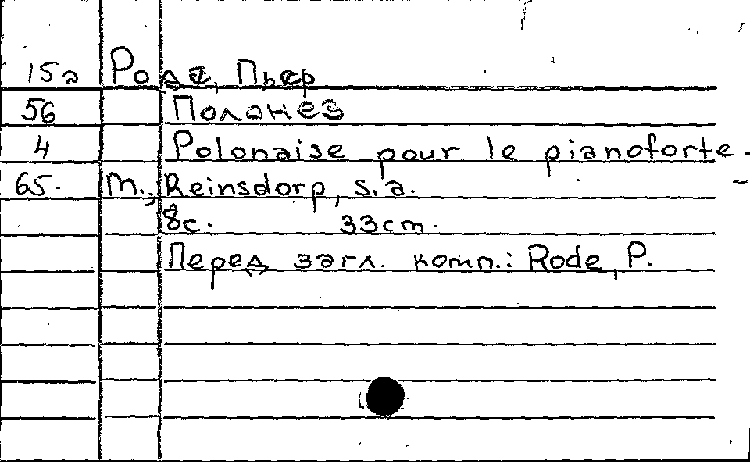 15а Роде, Пьер
56 Полонез
4 Polonaise pour le pianoforte.-
65. М., Reinsdorp, s.a. -
8с. 33cm.
Перед загл. комп.: Rode, P.